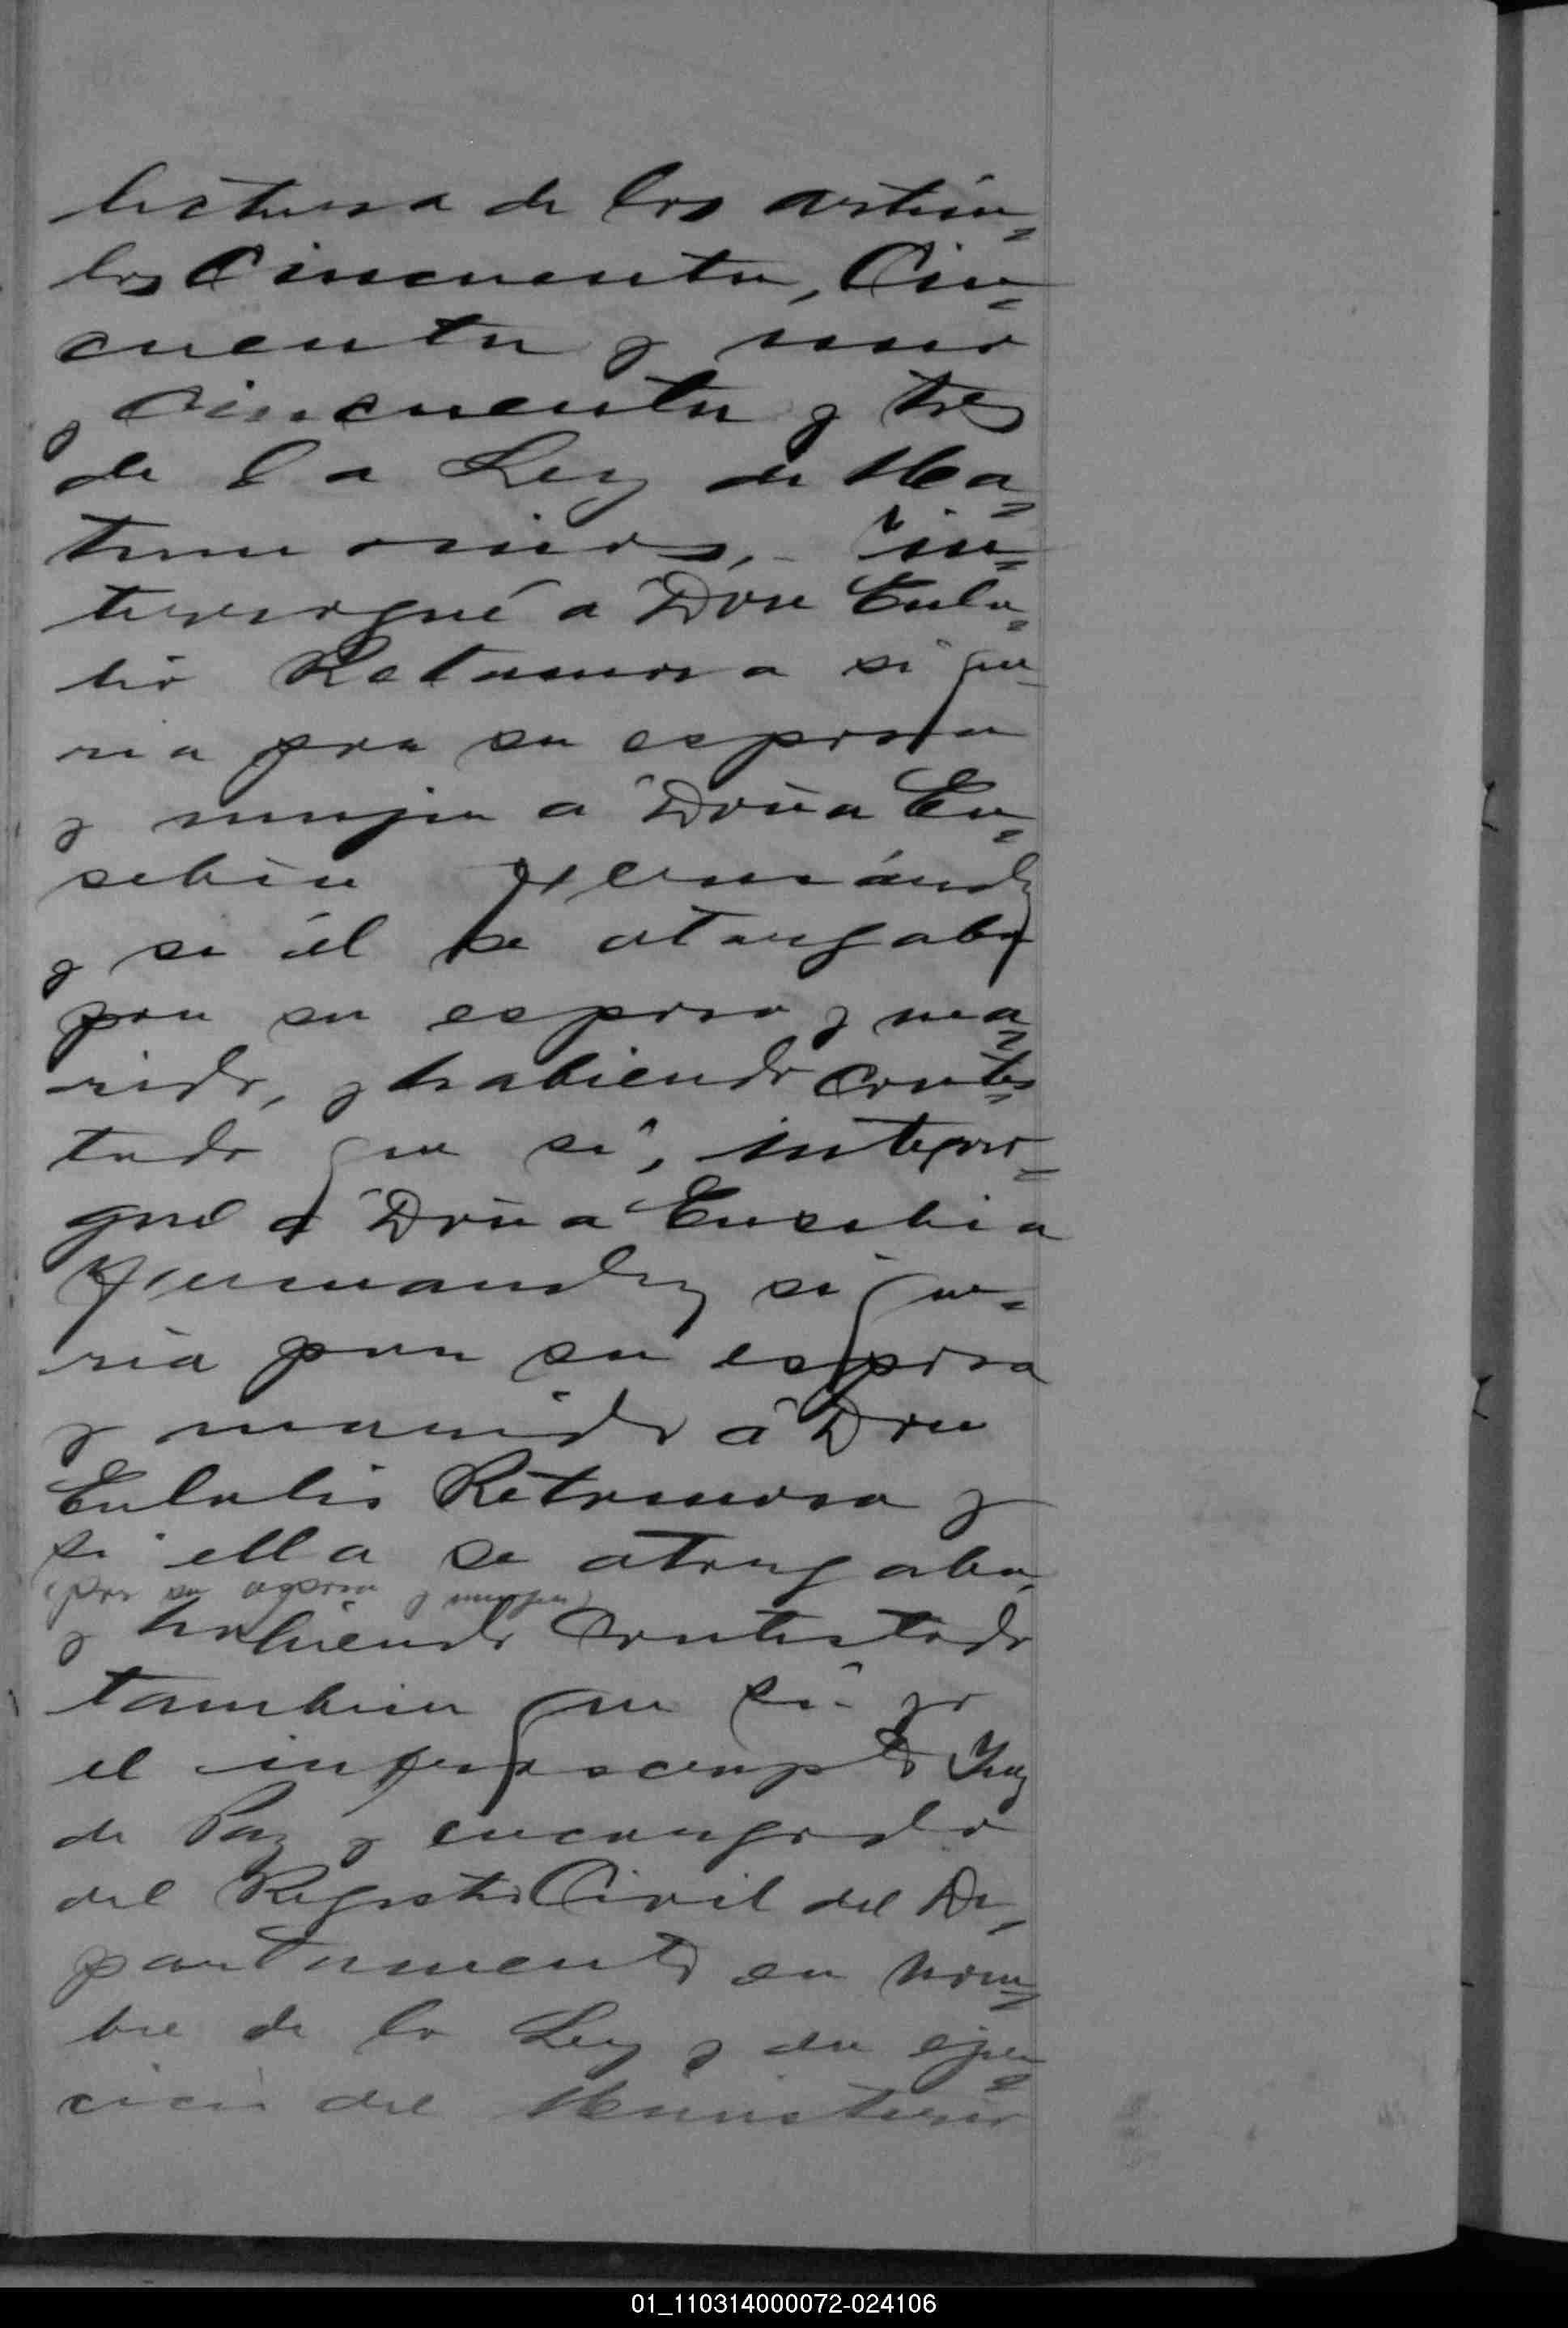 lectura de los artícu=
los Cincuenta, Cin=
cuenta y uno
y Cincuenta y tres
de la Ley de Ma=
trimonios, in=
terrogué a Don Eula=
lio Retamosa si que=
ria por su esposa
y mujer a Doña Eu=
sebia Hernández
y si él se otorgaba
por su esposo y ma=
rido, y habiendo contes=
tado que sí, interro=
gué a Doña Eusebia
Hernandez si que=
ria por su esposo
y marido á Don
Eulalio Retamosa y
si ella se otorgaba,
(por su esposa y mujer)
y habiendo contestado
tambien que sí yo
el infrascripto Juez
de Paz y encargado
del Registro Civil del De=
partamento en nom=
bre de la Ley y en ejer=
cicio del Ministerio
01_110314000072-024106